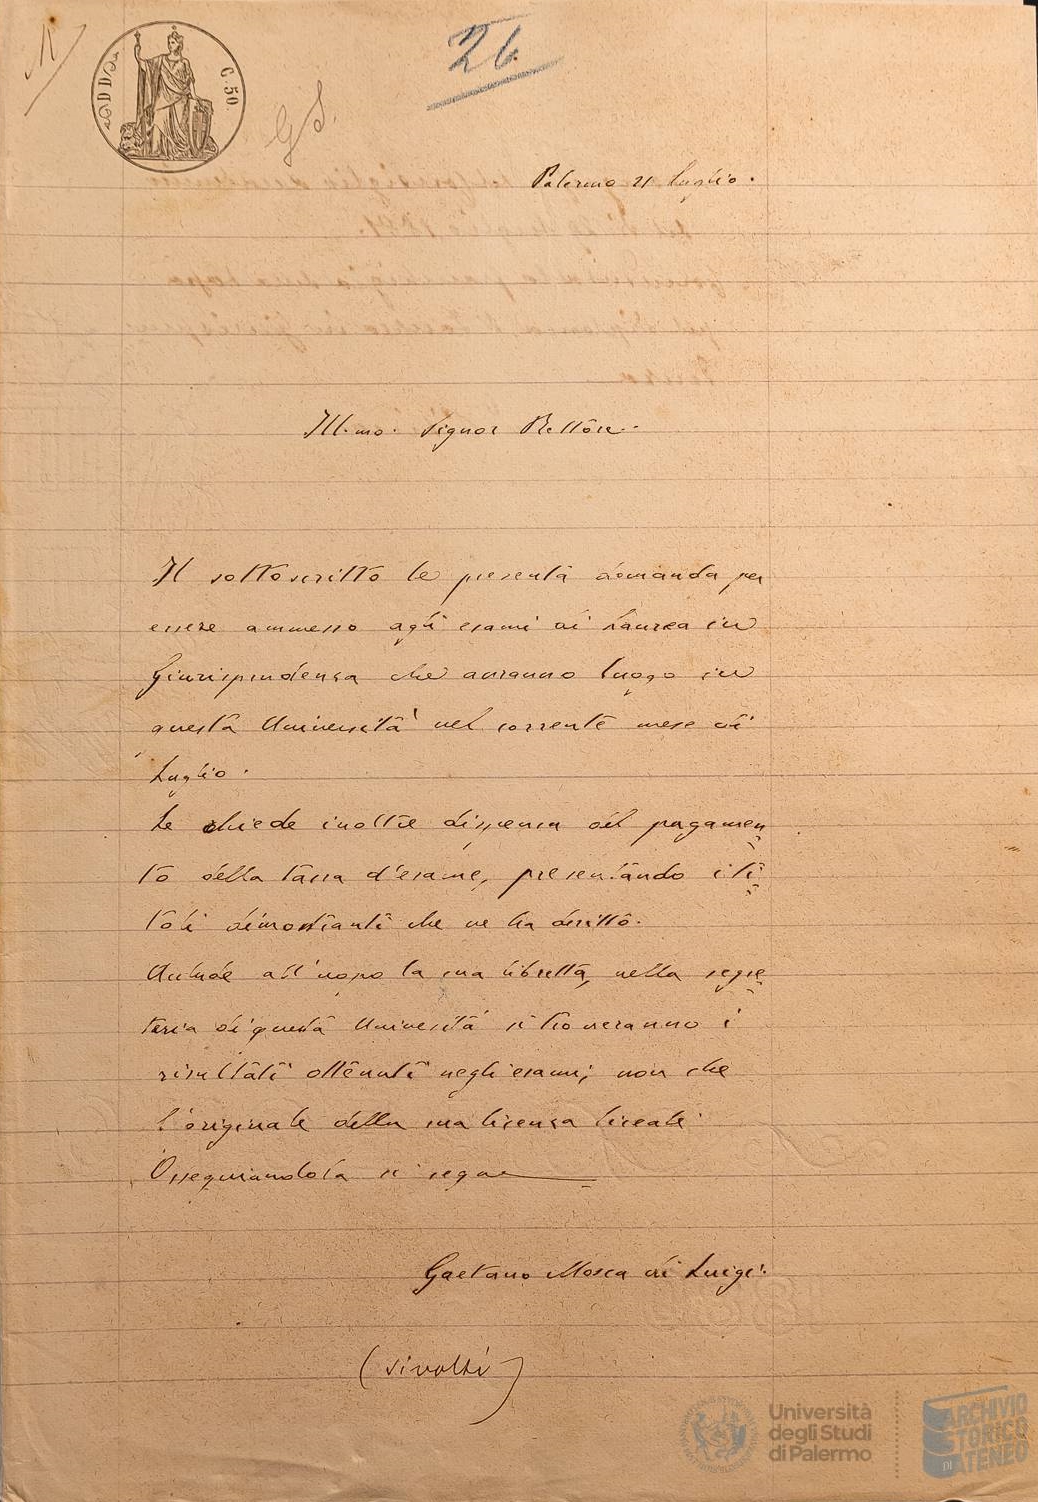 26
G S.
C. 50
Palermo 21 Luglio.
Ill.mo. Signor Rettore.
Il sottoscritto le presenta domanda per
essere ammesso agli esami di Laurea in
Giurisprudenza che avranno luogo in
questa Università nel corrente mese di
Luglio.
Le chiede inoltre dispensa del pagamen
to della tassa d'esame, presentando i ti
toli dimostranti che ne ha diritto.
Acclude all'uopo la sua libretta, nella segre
teria di questa Università si troveranno i
risultati ottenuti negli esami; non che
l'originale della sua licenza liceale
Ossequiandola si segna
Gaetano Mosca di Luigi.
(si volti)
Università
degli Studi
di Palermo
ARCHIVIO
STORICO
DI ATENEO